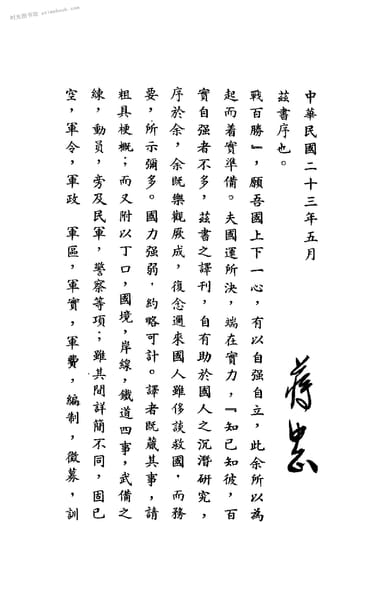 空，軍令，軍政　軍區，軍實，軍費，編制，徵募，訓
練，動員，旁及民軍，警察等項；雖其間詳簡不同，固已
粗具梗概；而又附以丁口，國境，岸線，鐵道四事，武備之
要，所示彌多。國力强弱，約略可計。譯者既蕆其事，請
序於余，余既樂觀厥成，復念邇來國人雖侈談救國，而務
實自强者不多，茲書之譯刊，自有助於國人之沉潛研究，
起而着實準備。夫國運所決，端在實力，『知已知彼，百
戰百勝』，願吾國上下一心，有以自强自立，此余所以為
茲書序也。
中華民國二十三年五月
蔣中正